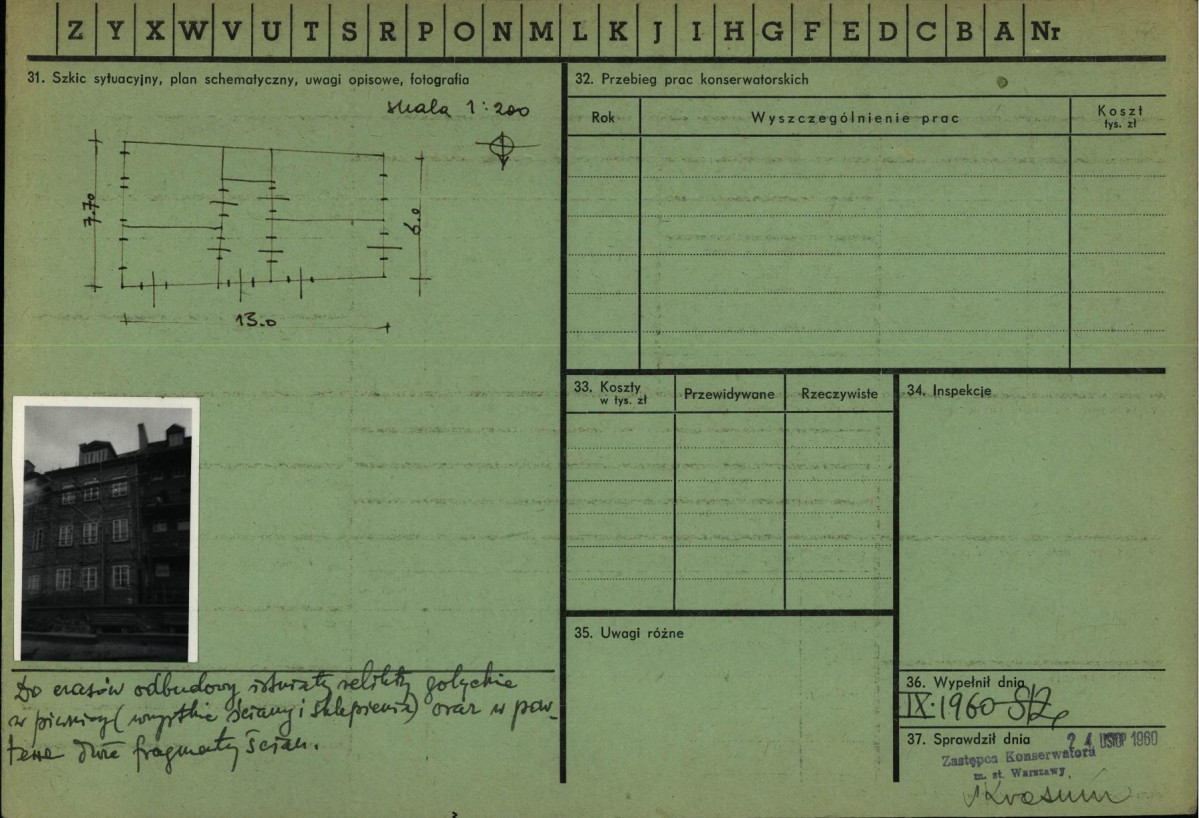 Z Y X W V U T S R P O N M L K J I H G F E D C B A Nr
31. Szkic sytuacyjny, plan schematyczny, uwagi opisowe, fotografia
skala 1:200
7.70
6.0
13.0
Do czasów odbudowy istniały relikty gotyckie
w piwnicy (wszystkie ściany i sklepienia) oraz w par-
terze dwa fragmenty ścian.
32. Przebieg prac konserwatorskich
Rok
Wyszczególnienie prac
Koszt
tys. zł
33. Koszty
w tys. zł
Przewidywane
Rzeczywiste
34. Inspekcje
35. Uwagi różne
36. Wypełnił dnia
IX.1960
37. Sprawdził dnia
24 LISTOP 1960
Zastępca Konserwatora
m. st. Warszawy